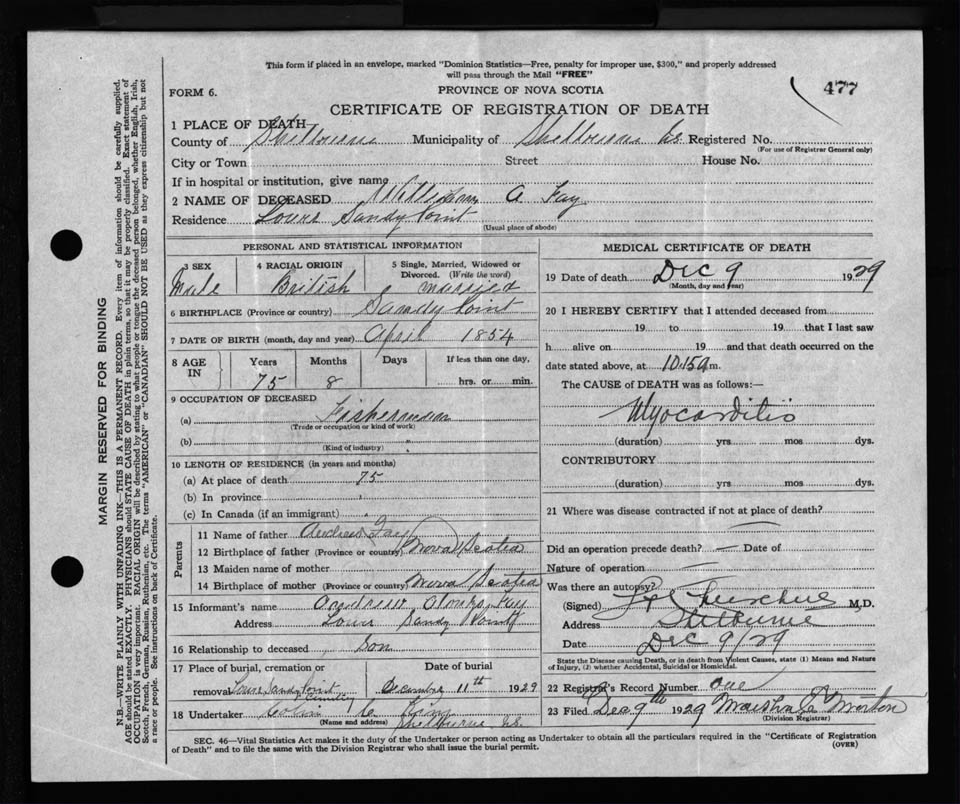 This form if placed in an envelope, marked "Dominion Statistics—Free, penalty for improper use, $300," and properly addressed
will pass through the Mail "FREE"
FORM 6.
PROVINCE OF NOVA SCOTIA
477
CERTIFICATE OF REGISTRATION OF DEATH
1 PLACE OF DEATH
County of Shelburne Municipality of Shelburne Registered No.
(For use of Registrar General only)
City or Town Street House No.
If in hospital or institution, give name
2 NAME OF DECEASED William A Fay
Residence Lower Sandy Point
(Usual place of abode)
PERSONAL AND STATISTICAL INFORMATION
3 SEX 4 RACIAL ORIGIN 5 Single, Married, Widowed or
Divorced. (Write the word)
Male British married
6 BIRTHPLACE (Province or country) Sandy Point
7 DATE OF BIRTH (month, day and year) April 1854
8 AGE IN Years Months Days If less than one day,
75 8 hrs. or min.
9 OCCUPATION OF DECEASED
(a) Fisherman
(Trade or occupation or kind of work)
(b)
(Kind of industry)
10 LENGTH OF RESIDENCE (in years and months)
(a) At place of death 75
(b) In province
(c) In Canada (if an immigrant)
Parents
11 Name of father Andrew Fay
12 Birthplace of father (Province or country) Nova Scotia
13 Maiden name of mother
14 Birthplace of mother (Province or country) Nova Scotia
15 Informant's name Andrew Alonzo Fay
Address Lower Sandy Point
16 Relationship to deceased Son
17 Place of burial, cremation or Date of burial
removal Lower Sandy Point December 11th 1929
18 Undertaker King
(Name and address) Shelburne N.S.
MEDICAL CERTIFICATE OF DEATH
19 Date of death Dec 9 1929
(Month, day and year)
20 I HEREBY CERTIFY that I attended deceased from
19 to 19 that I last saw
h alive on 19 and that death occurred on the
date stated above, at 10.15 a m.
The CAUSE of DEATH was as follows:—
Myocarditis
(duration) yrs mos dys.
CONTRIBUTORY
(duration) yrs. mos. dys.
21 Where was disease contracted if not at place of death?
Did an operation precede death? — Date of
Nature of operation —
Was there an autopsy?
(Signed) M.D.
Address Shelburne
Date Dec 9/29
State the Disease causing Death, or in death from Violent Causes, state (1) Means and Nature
of Injury, (2) whether Accidental, Suicidal or Homicidal.
22 Registrar's Record Number one
23 Filed Dec 9th 1929 Morton
(Division Registrar)
SEC. 46—Vital Statistics Act makes it the duty of the Undertaker or person acting as Undertaker to obtain all the particulars required in the "Certificate of Registration
of Death" and to file the same with the Division Registrar who shall issue the burial permit.
(OVER)
MARGIN RESERVED FOR BINDING
N.B.—WRITE PLAINLY WITH UNFADING INK—THIS IS A PERMANENT RECORD. Every item of information should be carefully supplied.
AGE should be stated EXACTLY. PHYSICIANS should STATE CAUSE OF DEATH in plain terms, so that it may be properly classified. Exact statement of
OCCUPATION is very important. RACIAL ORIGIN will be described by stating to what people or tongue the deceased person belonged, whether English, Irish,
Scotch, French, German, Russian, Ruthenian, etc. The terms "AMERICAN" or "CANADIAN" SHOULD NOT BE USED as they express citizenship but not
a race or people. See instructions on back of Certificate.